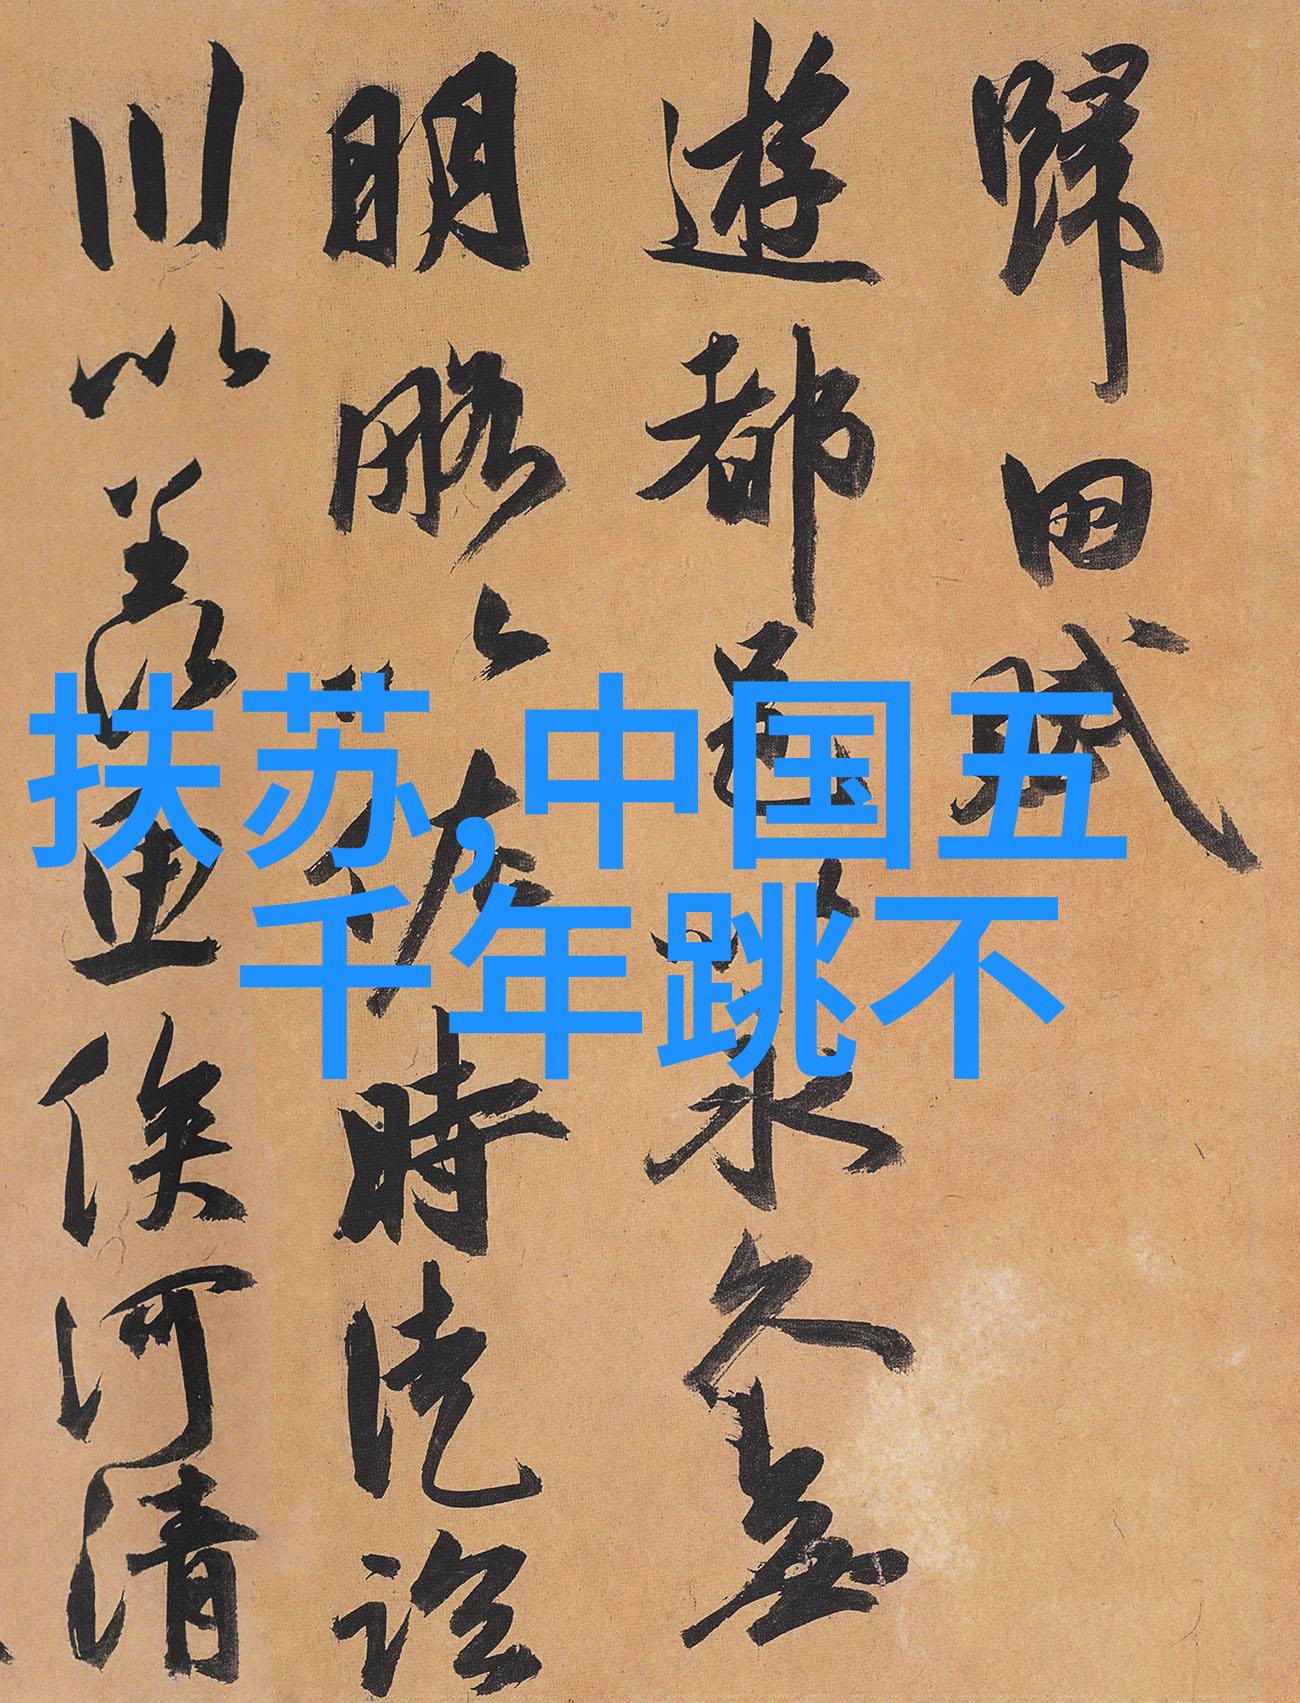 歸田賦
遊都邑以永久無
明略以佐時徒臨
川以羨魚俟河清
扶苏,中国五
千年跳不